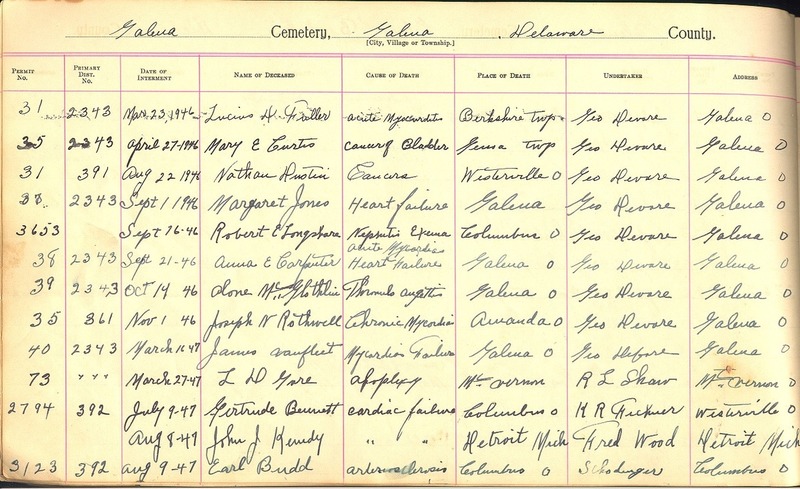 Galena Cemetery, Galena , Delaware County.
[City, Village or Township.]
Permit No. Primary Dist. No. Date of Interment Name of Deceased Cause of Death Place of Death Undertaker Address
31 2343 Mar. 23, 1946 Lucius H. Fuller acute Myocarditis Berkshire twp. Geo Devore Galena O
35 2343 April 27-1946 Mary E Curtis cancer of Bladder Genoa twp Geo Devore Galena O
31 391 Aug 22 1946 Nathan Dustin Cancers Westerville O Geo Devore Galena O
38. 2343 Sept 1 1946 Margaret Jones Heart failure Galena Geo Devore Galena O
3653 Sept 26-46 Robert E Longshore Columbus O Geo Devore Galena O
acute Myocardia
38 2343 Sept 21-46 Anna E Carpenter Heart Failure Galena O Geo Devore Galena O
39 2343 Oct 14 46 Galena O Geo Devore Galena O
35 861 Nov 1 46 Joseph N Rothwell Chronic Mycordia Amanda O Geo Devore Galena O
40 2343 March 1947 James vanfleet Mycordia Failure Galena O Geo Galena O
73 " " " March 27-47 L D Gore apoplexy Mt. Vernon R L Shaw Mt. Vernon O
2794 392 July 9-47 Gertrude Bennett cardiac failure Columbus O Westerville O
Aug 8-47 John J " " Detroit Mich Fred Wood Detroit Mich
3123 392 aug 9-47 Earl Budd arteriosclerosis Columbus O Schodinger Columbus O